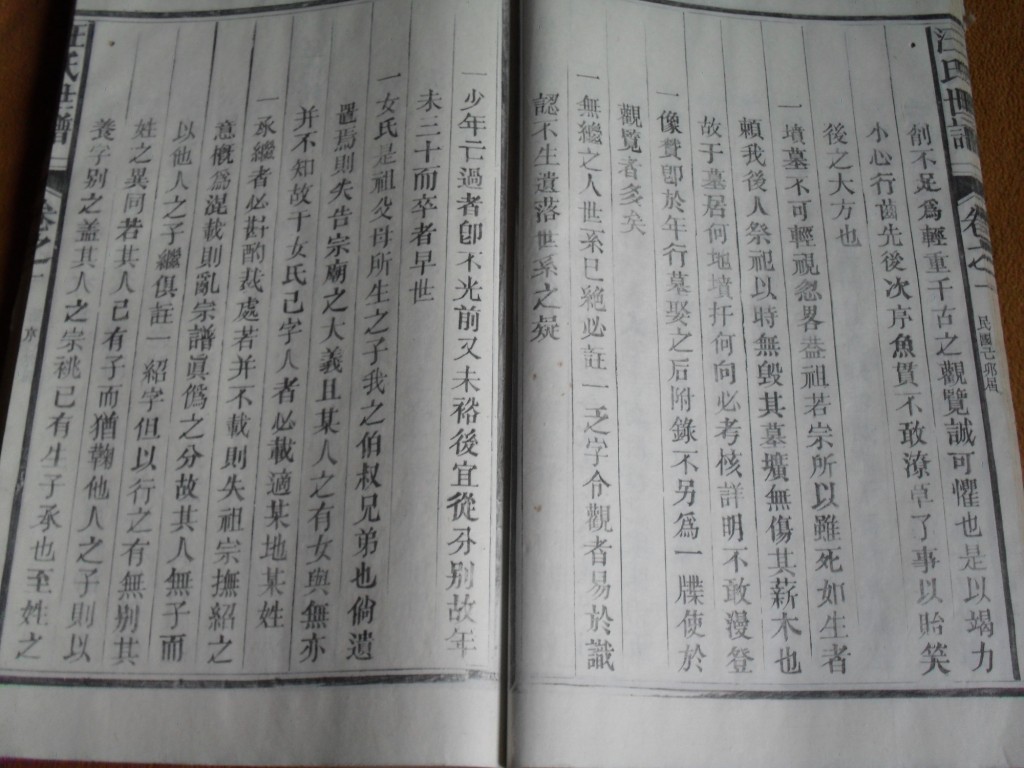 世譜
卷之一
民國己卯届
削不足為輕重千古之觀覽誠可懼也是以竭力
小心行齒先後次序魚貫不敢潦草了事以貽笑
後之大方也
一墳墓不可輕視忽畧葢祖若宗所以雖死如生者
頼我後人祭祀以時無毀其墓壙無傷其薪木也
故于墓居何地墳扦何向必考核詳明不敢漫登
一像賛卽於年行墓娶之后附錄不另爲一牒使於
觀覽者多矣
一無繼之人世系巳絶必註一乏字令觀者易於識
認不生遺落世系之疑
一少年亡過者卽不光前又未裕後宜從分別故年
未三十而卒者早世
一女氏是祖父母所生之子我之伯叔兄弟也倘遺
置焉則失告宗廟之大義且某人之有女與無亦
并不知故于女氏己字人者必載適某地某姓
一承繼者必斟酌裁處若并不載則失祖宗撫紹之
意概爲混載則亂宗譜眞僞之分故其人無子而
以他人之子繼俱註一紹字但以行之有無别其
姓之異同若其人己有子而猶鞠他人之子則以
養字别之盖其人之宗祧已有生子承也至姓之
氏世譜
卷之一